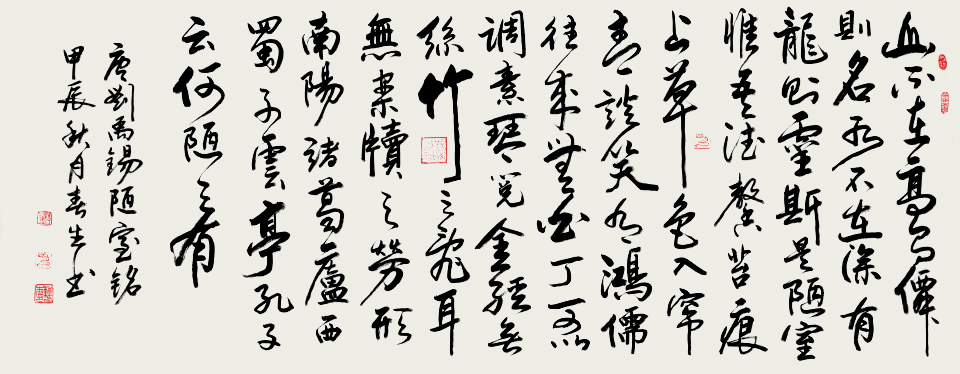 山不在高有僊
則名水不在深有
龍則靈斯是陋室
惟吾德馨苔痕
上草色入帘
青談笑有鴻儒
往來無白丁可以
調素琴閱金經無
絲竹之亂耳
無案牘之勞形
南陽諸葛廬西
蜀子雲亭孔子
云何陋之有
唐劉禹錫陋室銘
甲辰秋月春生书